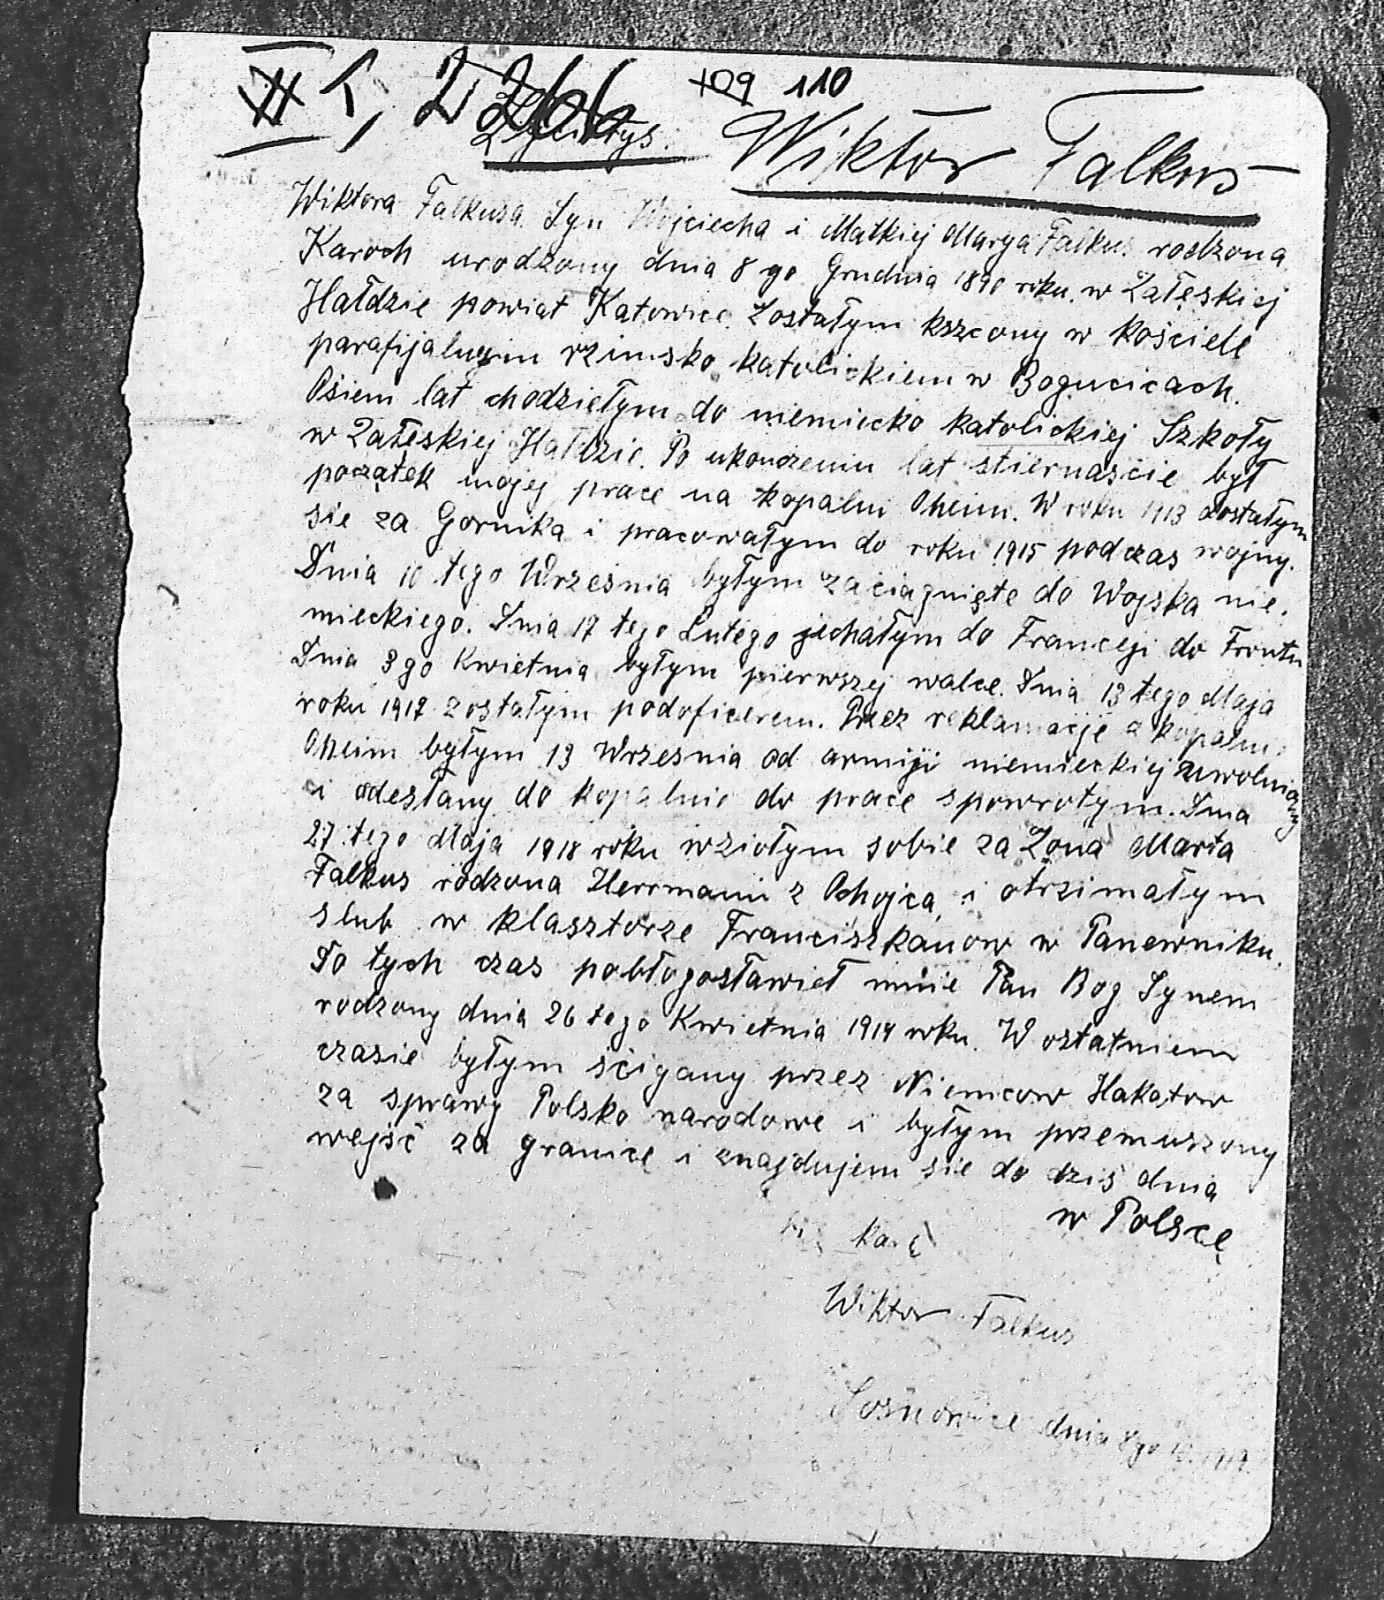 109 110
Życiorys.
Wiktor Falkus
Wiktora Falkusa. Syn Wojciecha i Matkiej Marya Falkus rodzona
Karoch urodzony dnia 8 go Grudnia 1890 roku. w Załęskiej
Hałdzie powiat Katowice. Zostałym krzcony w kościele
parafijalnym rzimsko katolickiem w Bogucicach.
Osiem lat chodziełym do niemiecko katolickiej Szkoły
w Załeskiej Hałdzie. Po ukonczeniu lat stiernaście był
początek mojej prace na kopalni Oheim. W roku 1913 dostałym
sie za Gornika i pracowałym do roku 1915 podczas wojny.
Dnia 10 tego Września byłym zaciagnięte do Wojska nie-
mieckiego. Dnia 17 tego Lutego jechałym do Francji do Frontu
Dnia 3 go Kwietnia byłym pierwszej walce. Dnia 13 tego Maja
roku 1917 zostałym podoficerem. Przez reklamacje z kopalni
Oheim byłym 13 Wrzesnia od armiji niemieckiej uwolniony
i odesłany do kopalnie do prace spowrotym. Dnia
27 tego Maja 1918 roku wziołym sobie za Żona Marta
Falkus rodzona Herrmann z Ochojca i otrzimałym
slub w klasztorze Franciszkanow w Panewniku.
Do tych czas pobłogosławieł mnie Pan Bog Synem
rodzony dnia 26 tego Kwietnia 1919 roku. W ostatniem
czasie byłym ścigany przez Niemcow Hakatow
za sprawy Polsko narodowe i byłym przemuszony
wejść za granicę i znajdujem sie do dziś dnia
w Polscę
Wiktor Falkus
Sosnowice dnia 8go 1919.